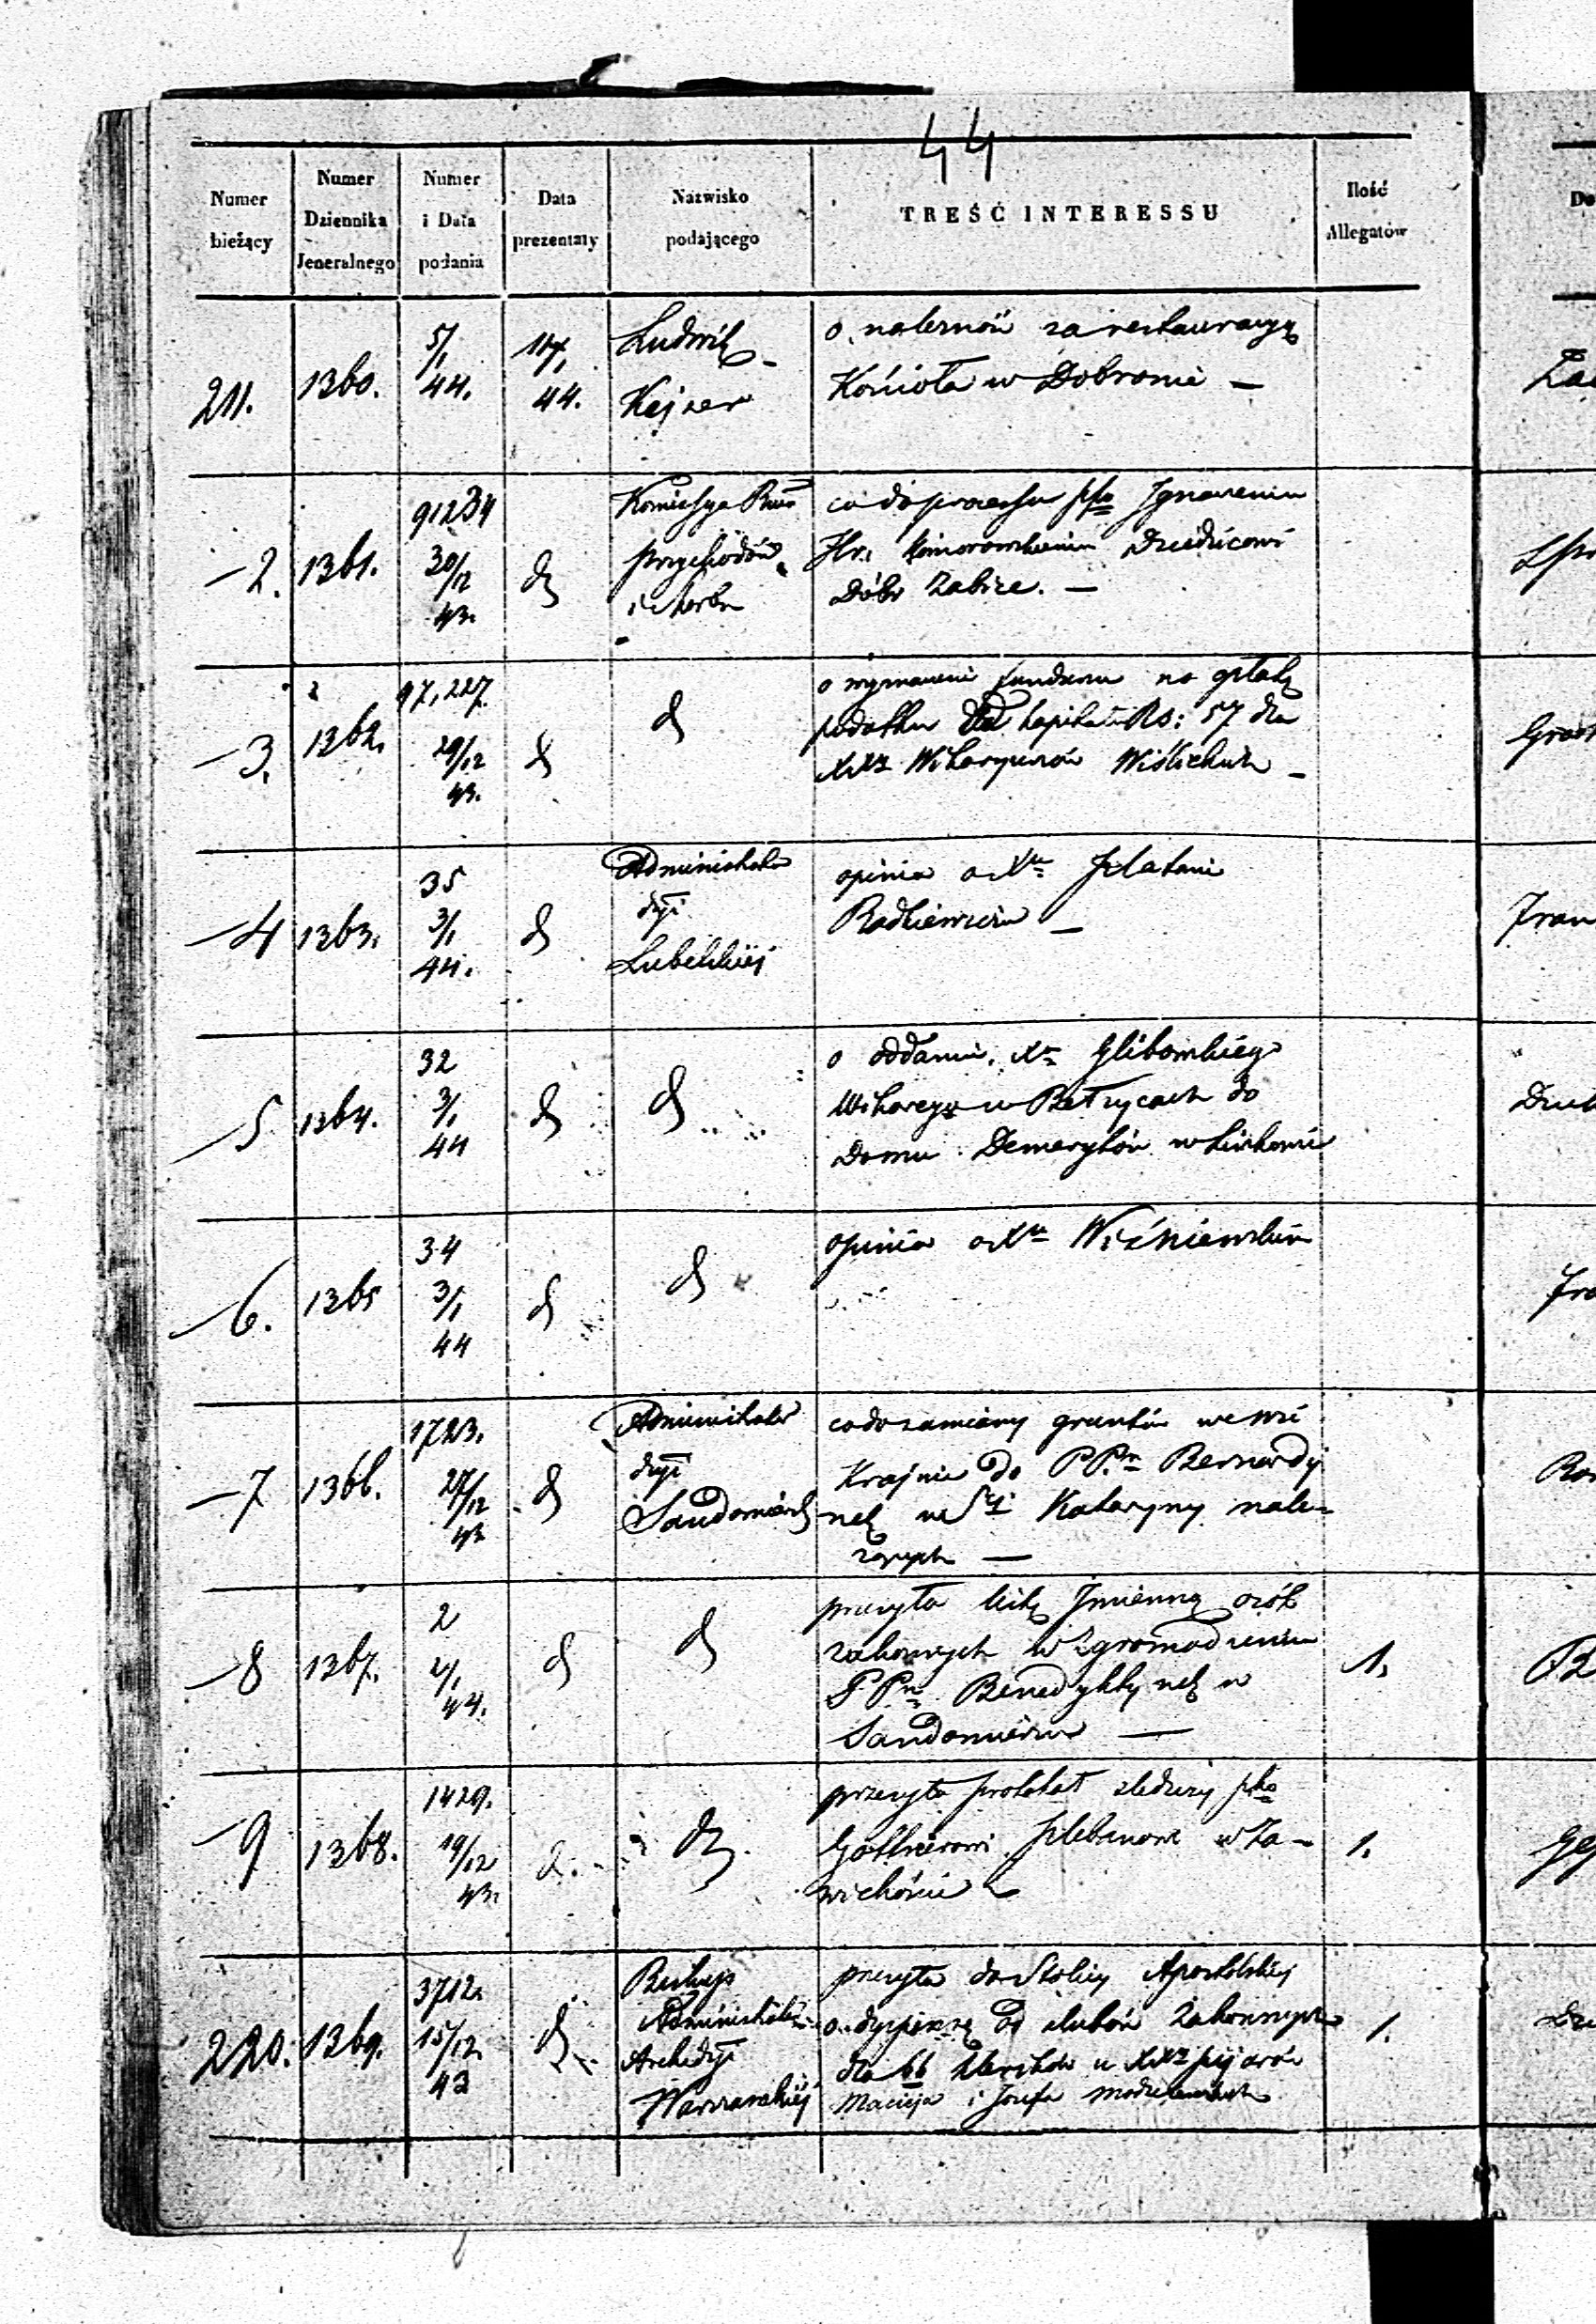 44
Numer bieżący
Numer Dziennika Jeneralnego
Numer i Data podania
Data prezentaty
Nazwisko podającego
TREŚĆ INTERESSU
Ilość Allegatów
Do
211. 1360. 5/1 44. 44. Ludwik Kejzer
o należność za restauracyę
Kościoła w Dobroniu —
2. 1361. 91234 30/12 43. d
Przychodów
i Skarbu
co do processu
Hr. Komorowskiemu Dziedzicowi
Dóbr Zabice. —
3. 1362. 97,227. 29/12 43. d d
o wyznaczenie funduszu na opłatę
podatku od kapitału Rs: 57 dla
XXży Wikaryuszów Wiślickich —
4 1363. 35 3/1 44. d Administrator
dyi
Lubelskiej
opinia o Xdu
Radkiewiczu —
5 1364. 32 3/1 44 d d
o oddaniu Xa Glibowskiego
Wikarego w do
Domu Demerytów w Liszkowie
6. 1365 34 3/1 44 d d
opinia o Xdu Wiśniewskim
7 1366. 1723. 27/12 43 d Administrator
dyi
Sandomirsk
co do zamiany gruntów we wsi
Krajnie do PPn Bernardy
nek w Stej Katarzyny nale-
żących —
8 1367. 2 2/1 44. d d
przesyła listę Imienną osób
zakonnych w Zgromadzeniu
PPn Benedyktynek w
Sandomierzu — 1.
9 1368. 1429. 19/12 43. d. d.
przesyła protokół śledczy pko
plebanowi w Za-
wichoście 1.
220. 1369. 3712. 15/12. 43 d Biskup
Administrator
Archidyi
Warszawskiej
przesyła do Stolicy Apostolskiej
o dyspensę od ślubów Zakonnych
dla bb Kleryków u XXży pijarów
Macieja i Józefa 1.